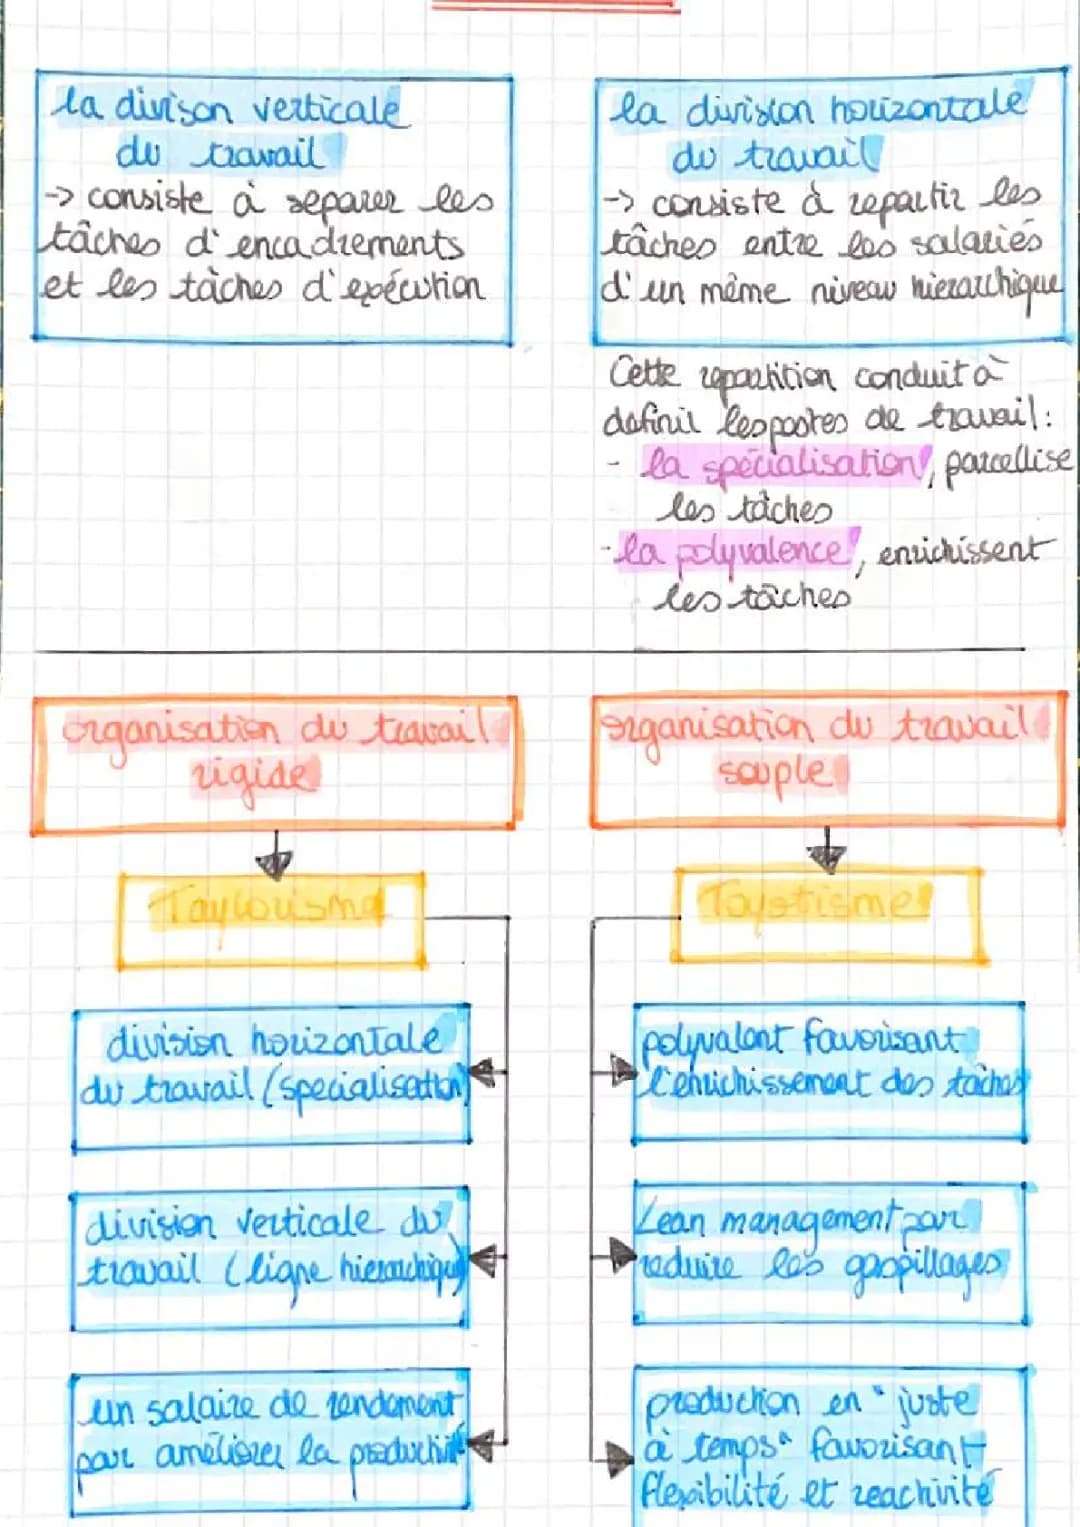 la divison verticale
du travail
-> consiste à separer les
tâches d'encadrements
et les tâches d'exécution
la division horizontale
du travail
-> consiste à repartir les
tâches entre les salariés
d'un même niveau hierarchique
Cette repartition conduit à
definir les postes de travail :
- la spécialisation, parcellise
les tâches
- la polyvalence, enrichissent
les tâches
organisation du travail
rigide
organisation du travail
souple
Taylorisme
Toyotisme
division horizontale
du travail (specialisation)
division verticale du
travail (ligne hierarchique)
un salaire de rendement
par améliorer la productivité
polyvalent favorisant
l'enrichissement des tâches
Lean management par
reduire les gaspillages
production en "juste
à temps" favorisant
flexibilité et reactivité